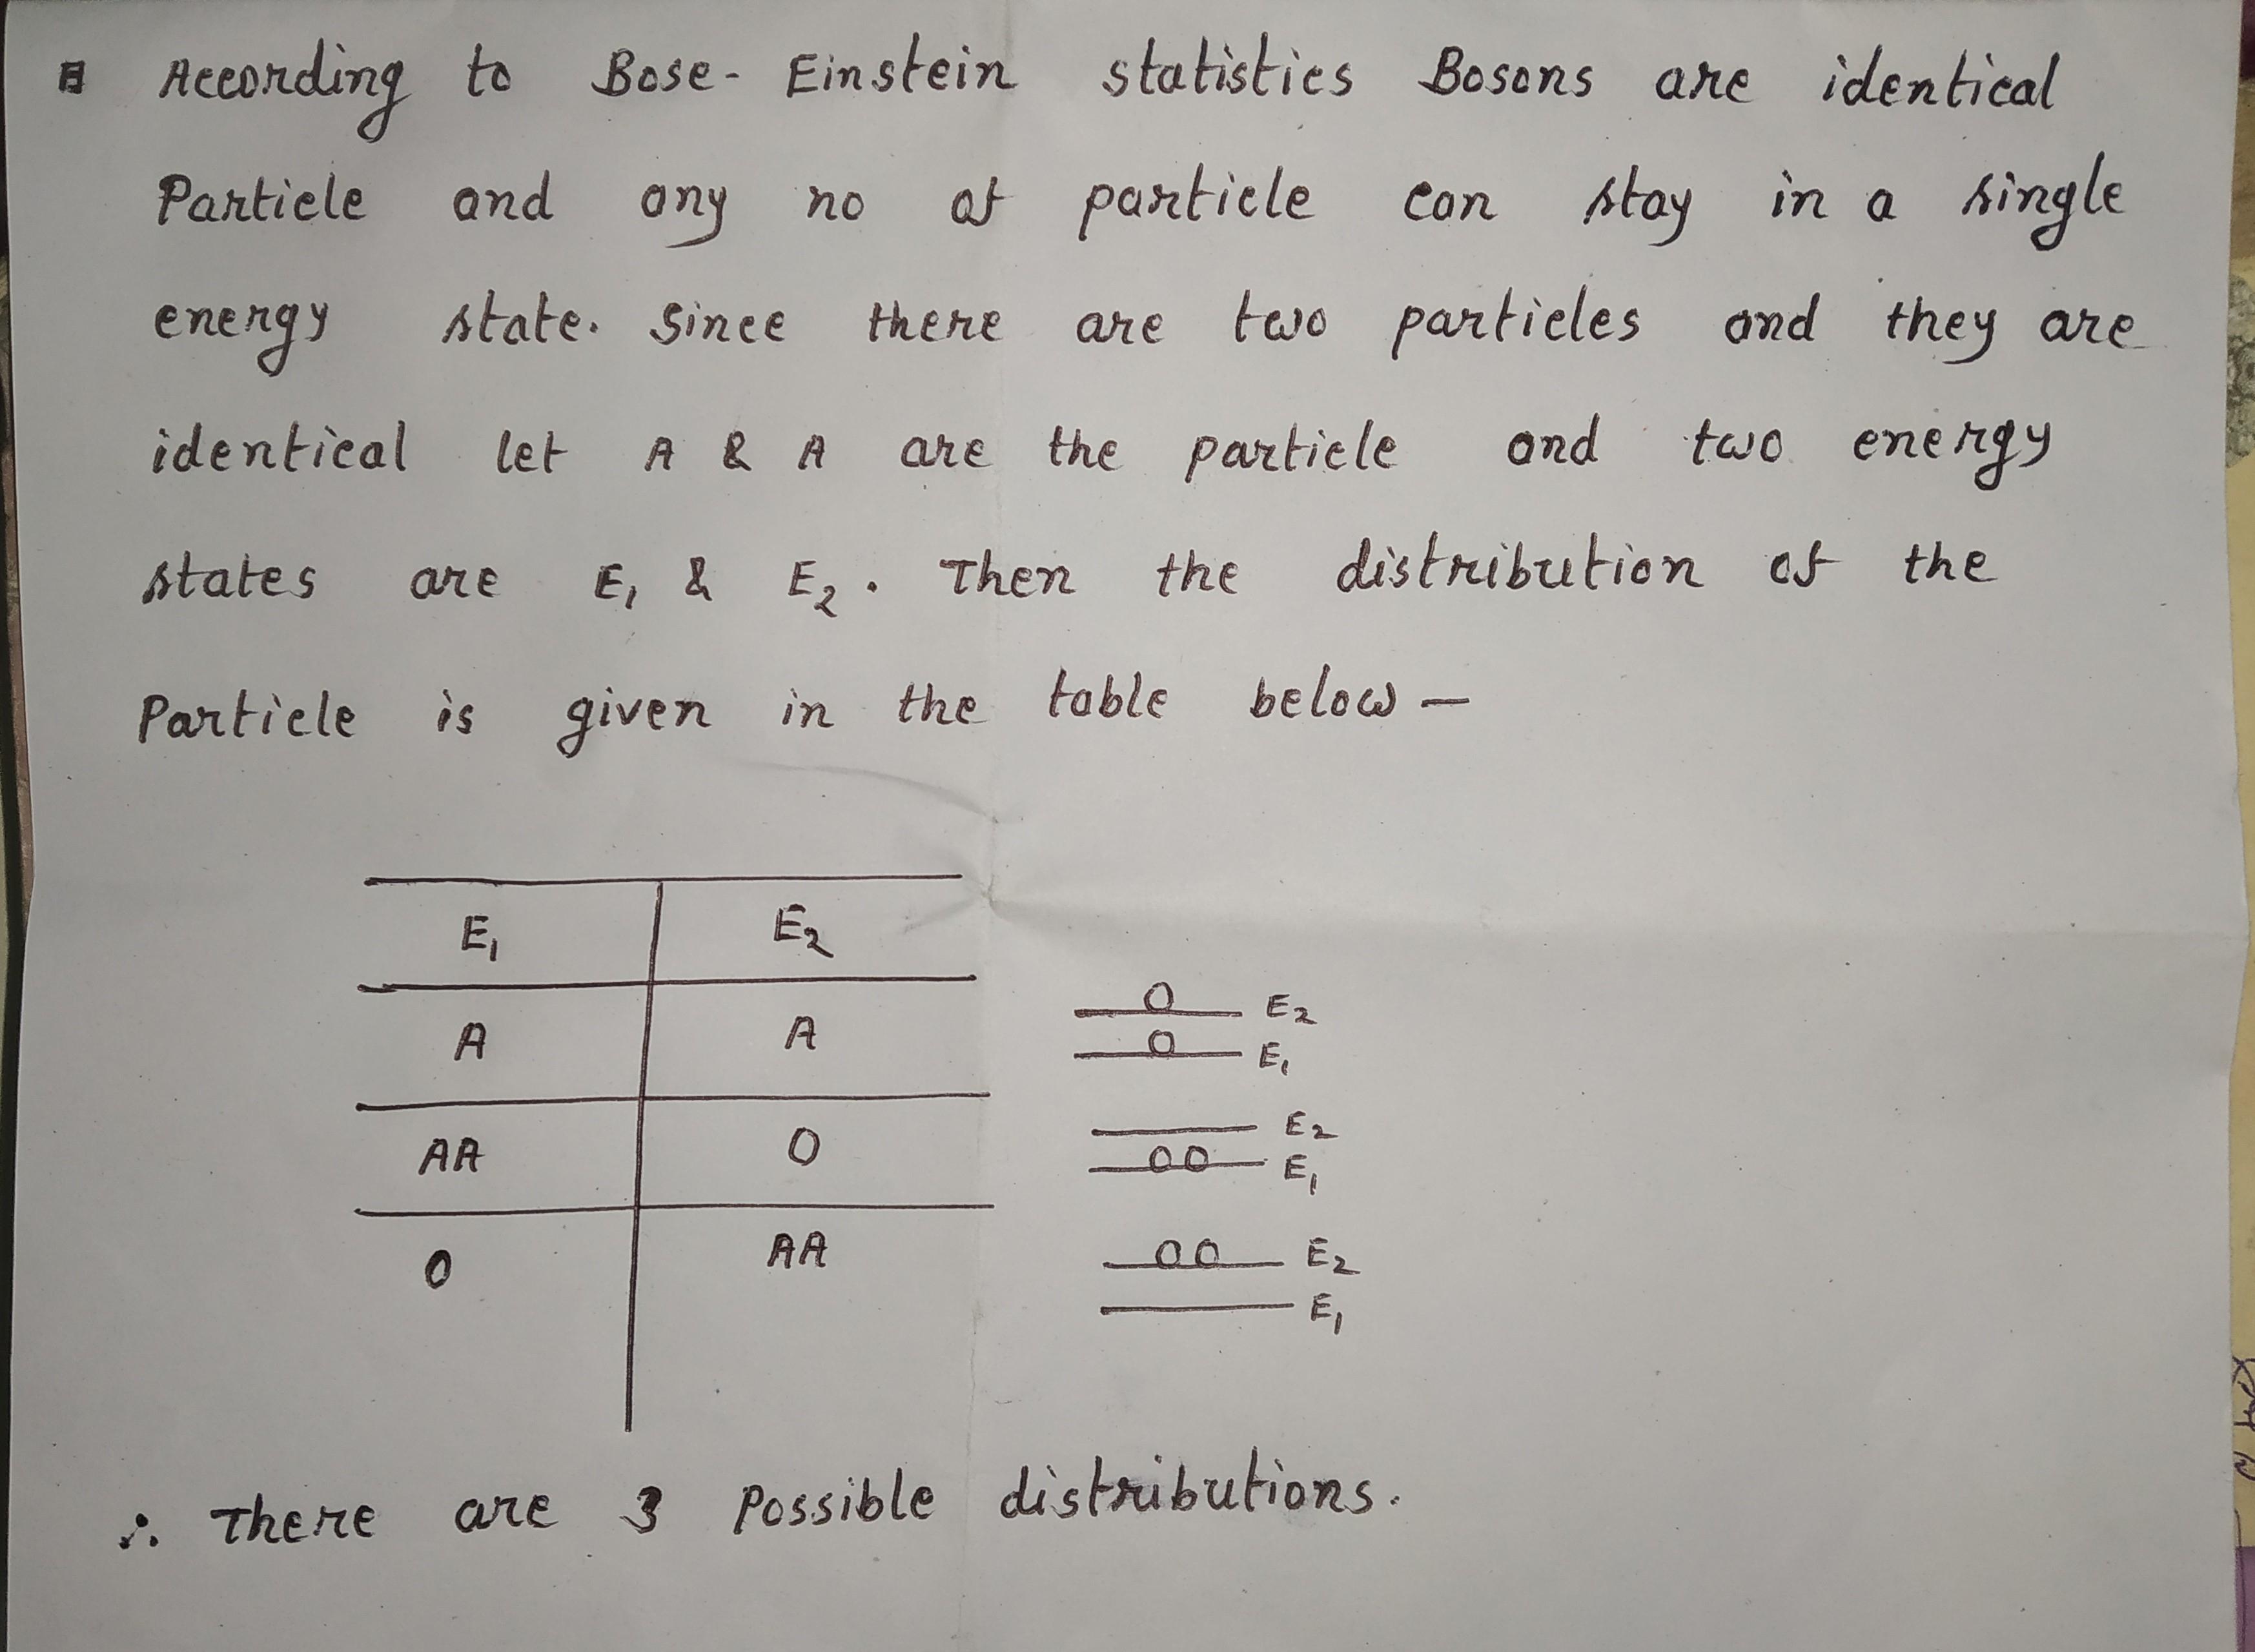 According to Bose-Einstein statistics Bosons are identical
Particle and any no of particle can stay in a single
energy state. Since there are two particles and they are
identical let A & A are the particle and two energy
states are E₁ & E₂. Then the distribution of the
Particle is given in the table below —
E₁ E₂
A A
AA O
O AA
E₂
E₁
E₂
E₁
E₂
E₁
∴ There are 3 Possible distributions.